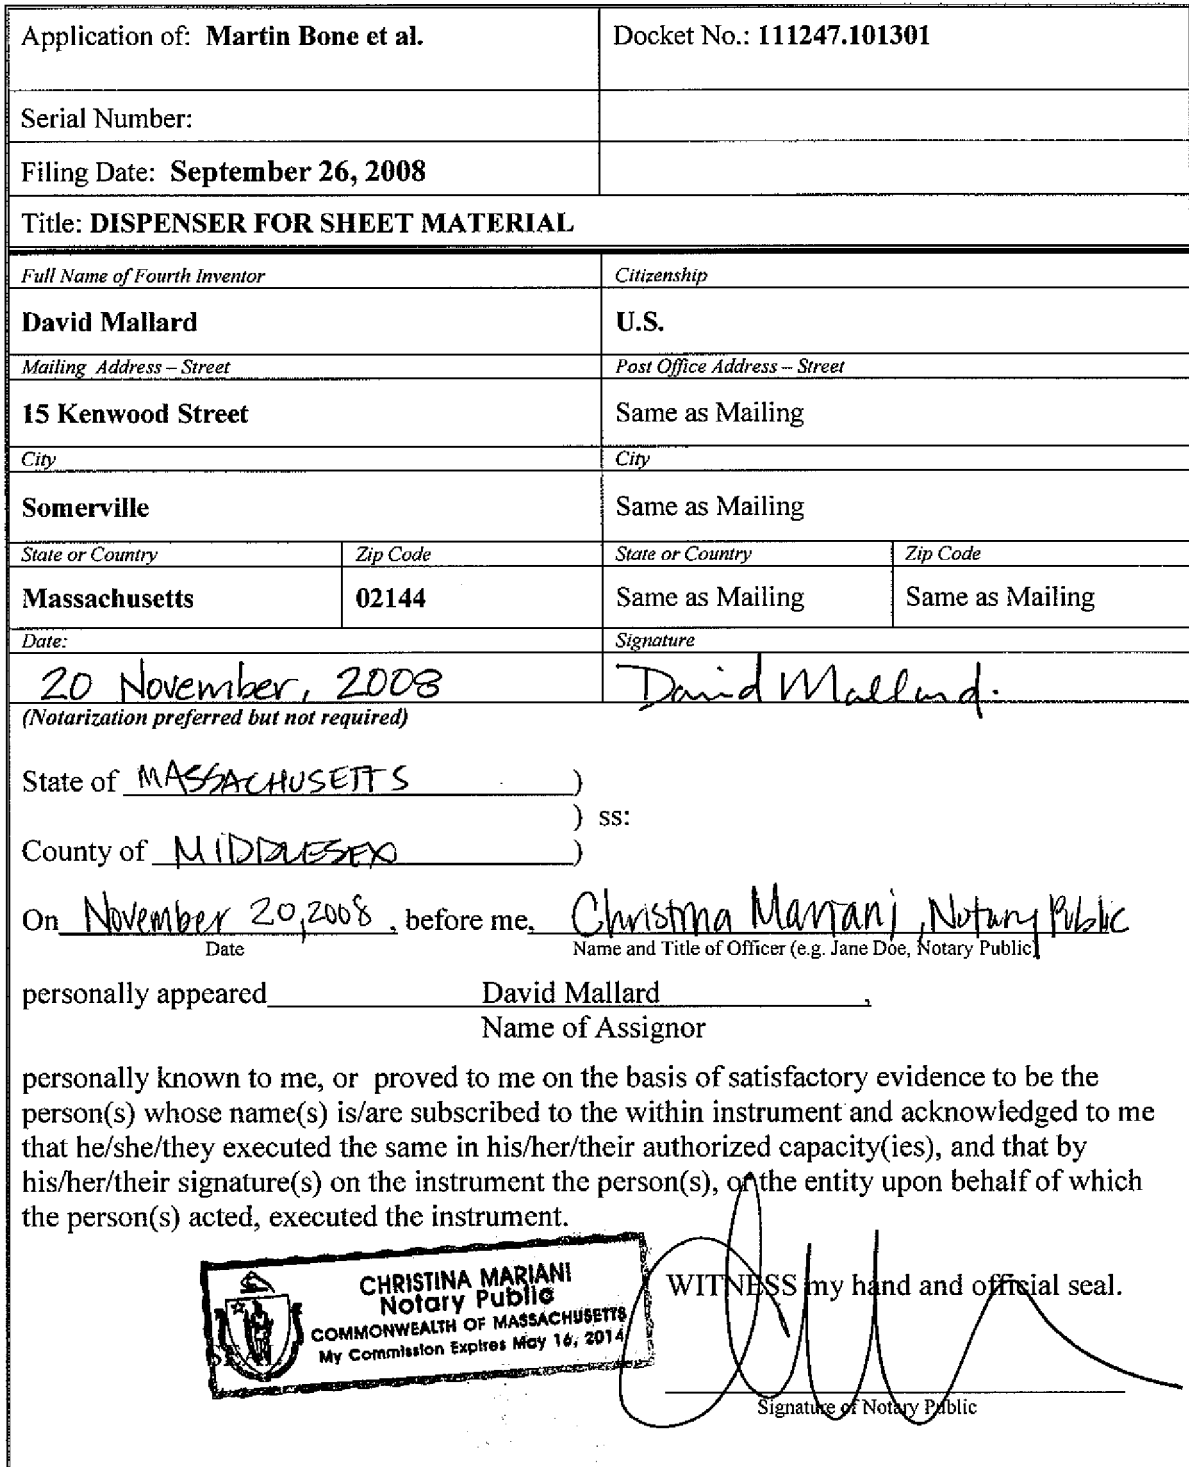 Application of: Martin Bone et al.
Docket No.: 111247.101301
Serial Number:
Filing Date: September 26, 2008
Title: DISPENSER FOR SHEET MATERIAL
Full Name of Fourth Inventor
Citizenship
David Mallard
U.S.
Mailing Address – Street
Post Office Address – Street
15 Kenwood Street
Same as Mailing
City
City
Somerville
Same as Mailing
State or Country
Zip Code
State or Country
Zip Code
Massachusetts
02144
Same as Mailing
Same as Mailing
Date:
Signature
20 November, 2008
David Mallard.
(Notarization preferred but not required)
State of MASSACHUSETTS )
) ss:
County of MIDDLESEX )
On November 20, 2008, before me, Christina Mariani, Notary Public
Date
Name and Title of Officer (e.g. Jane Doe, Notary Public)
personally appeared David Mallard,
Name of Assignor
personally known to me, or proved to me on the basis of satisfactory evidence to be the
person(s) whose name(s) is/are subscribed to the within instrument and acknowledged to me
that he/she/they executed the same in his/her/their authorized capacity(ies), and that by
his/her/their signature(s) on the instrument the person(s), or the entity upon behalf of which
the person(s) acted, executed the instrument.
CHRISTINA MARIANI
Notary Public
COMMONWEALTH OF MASSACHUSETTS
My Commission Expires May 16, 2014
WITNESS my hand and official seal.
Signature of Notary Public